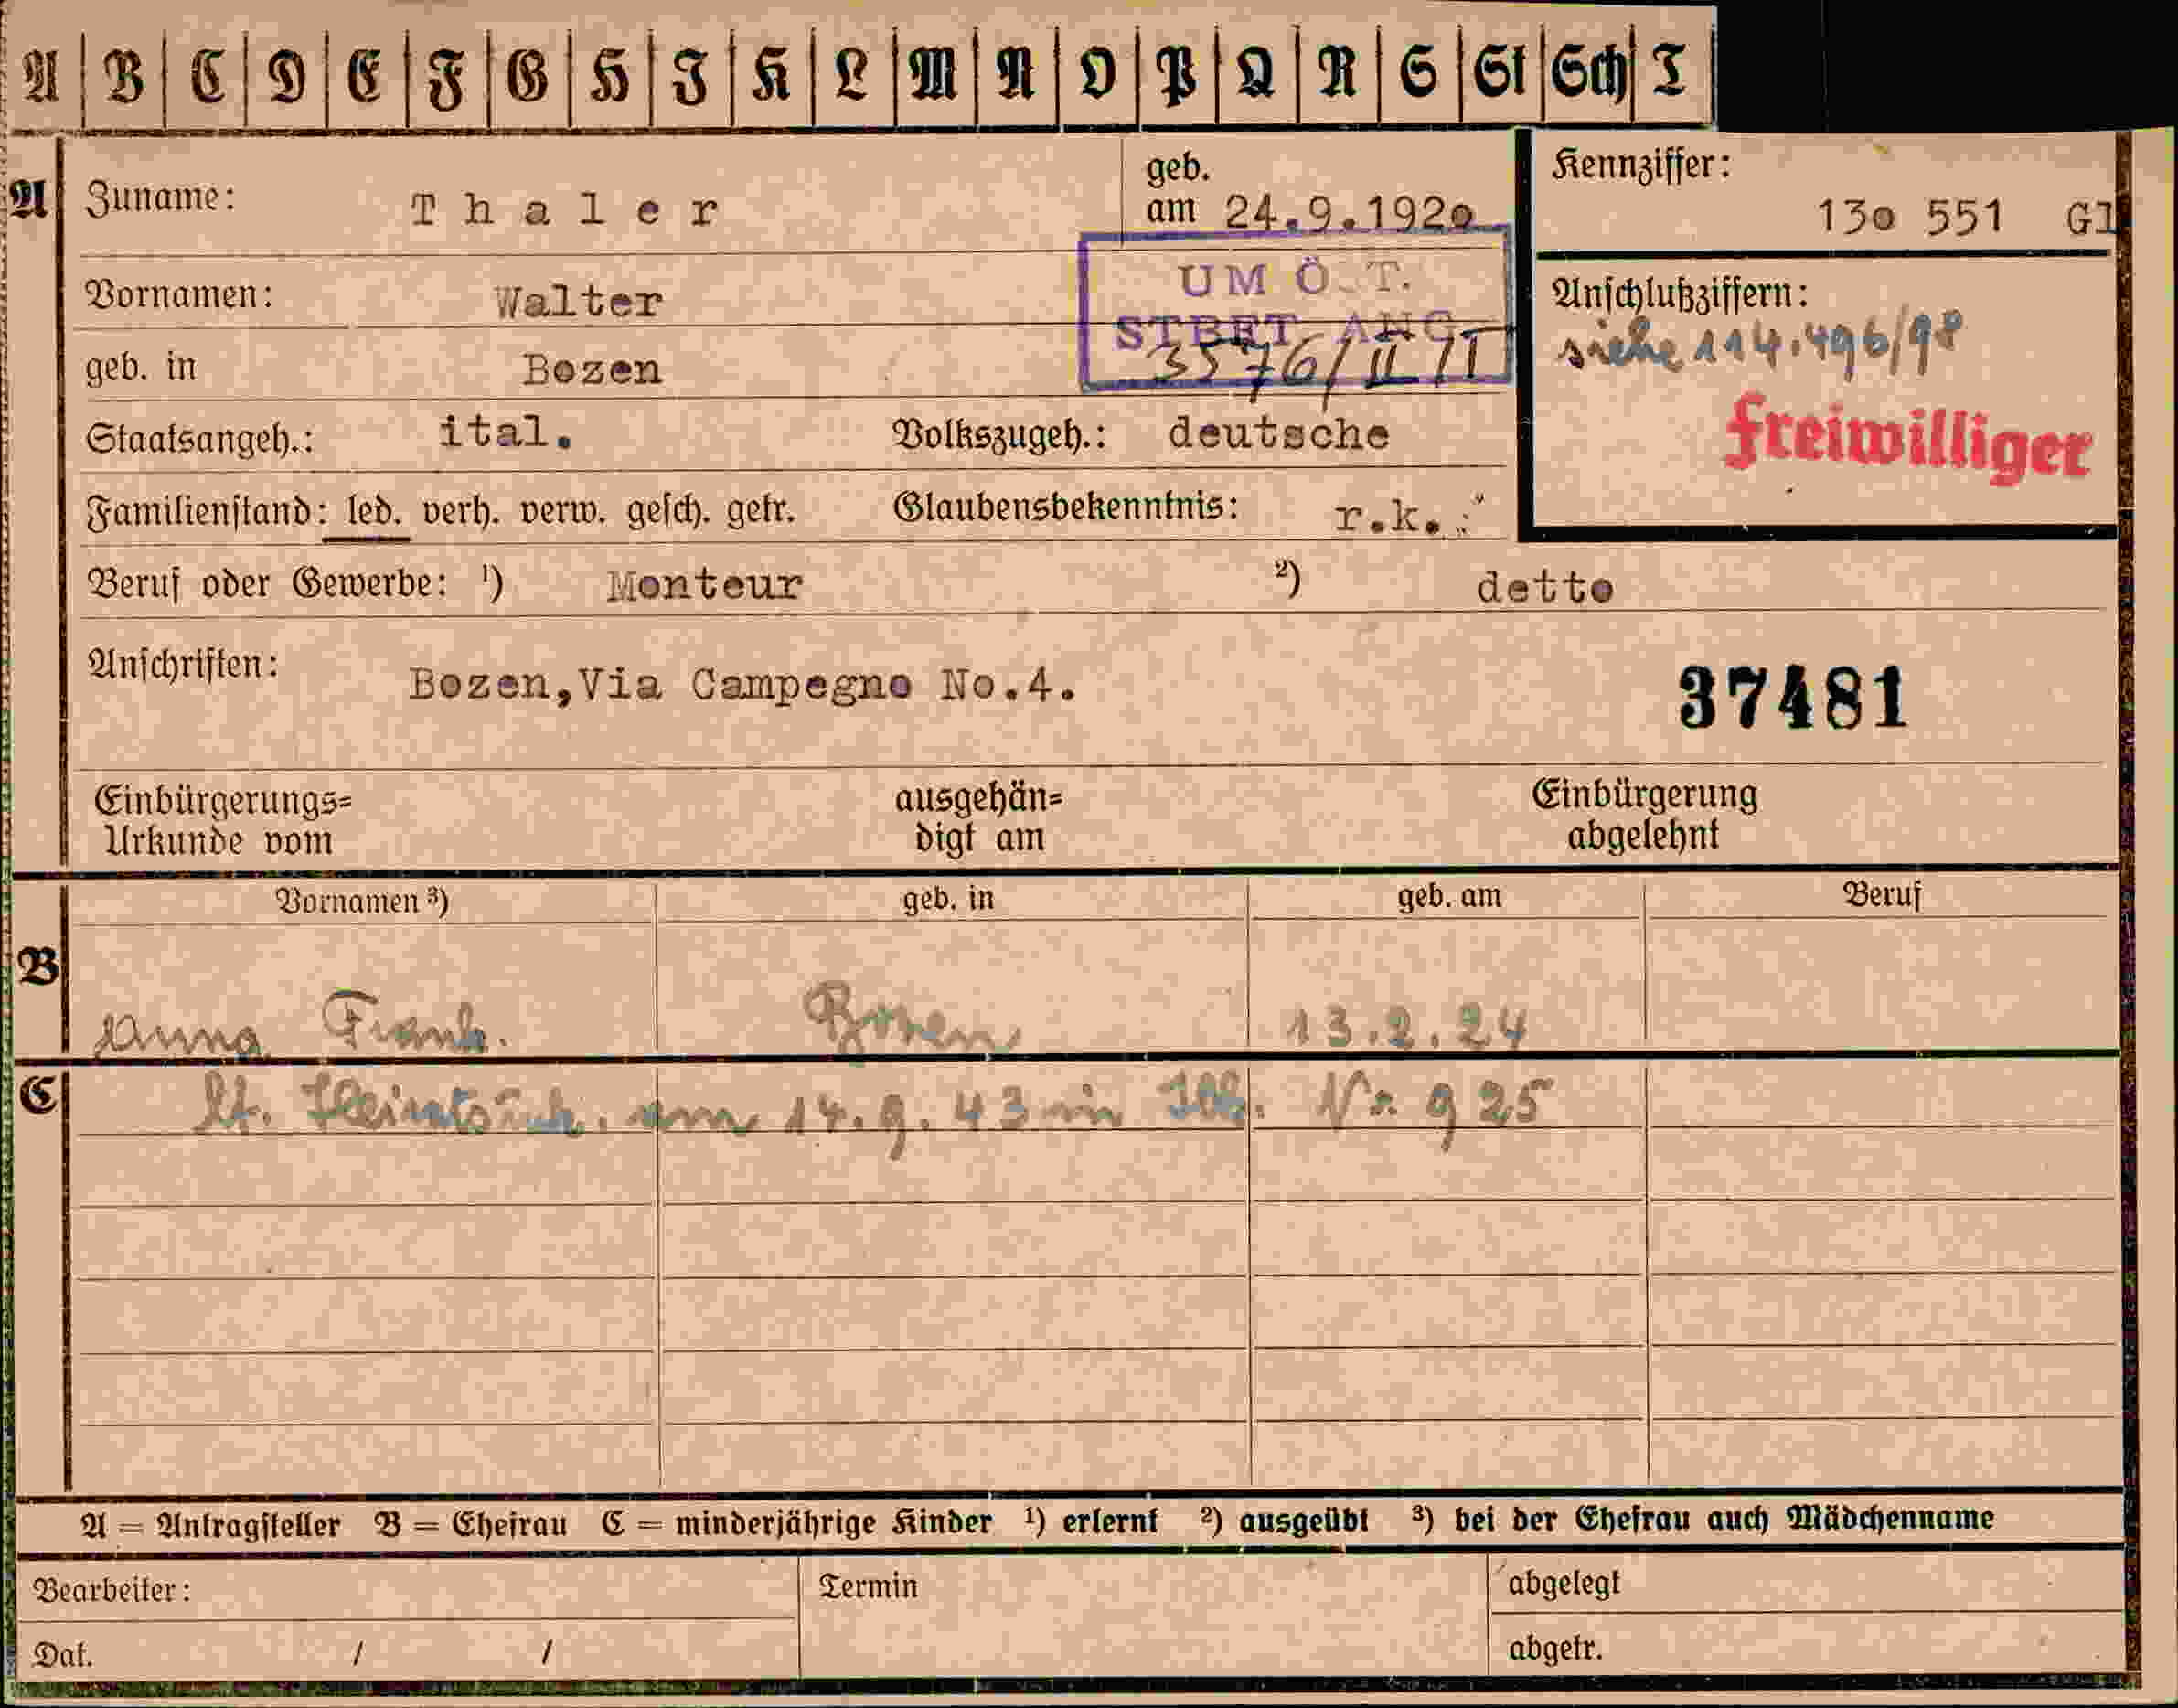 A B C D E F G H J K L M N O P Q R S St Sch T
A
Zuname: Thaler
geb. am 24.9.192o
Kennziffer: 13o 551 Gl
Vornamen: Walter
UM Ö. T.
STBET ANG
3576/II/I
Anschlußziffern:
siehe 114.496/98
Freiwilliger
geb. in Bozen
Staatsangeh.: ital. Volkszugeh.: deutsche
Familienstand: led. verh. verw. gesch. getr. Glaubensbekenntnis: r.k.
Beruf oder Gewerbe: 1) Monteur 2) detto
Anschriften: Bozen,Via Campegno No.4.
37481
Einbürgerungs=
Urkunde vom
ausgehän=
digt am
Einbürgerung
abgelehnt
Vornamen 3) geb. in geb. am Beruf
B
Anna Frank. Bozen 13.2.24
C
lt. am 14.9.43 in Nr. 925
A = Antragsteller B = Ehefrau C = minderjährige Kinder 1) erlernt 2) ausgeübt 3) bei der Ehefrau auch Mädchenname
Bearbeiter: Termin abgelegt
Dat. / / abgetr.